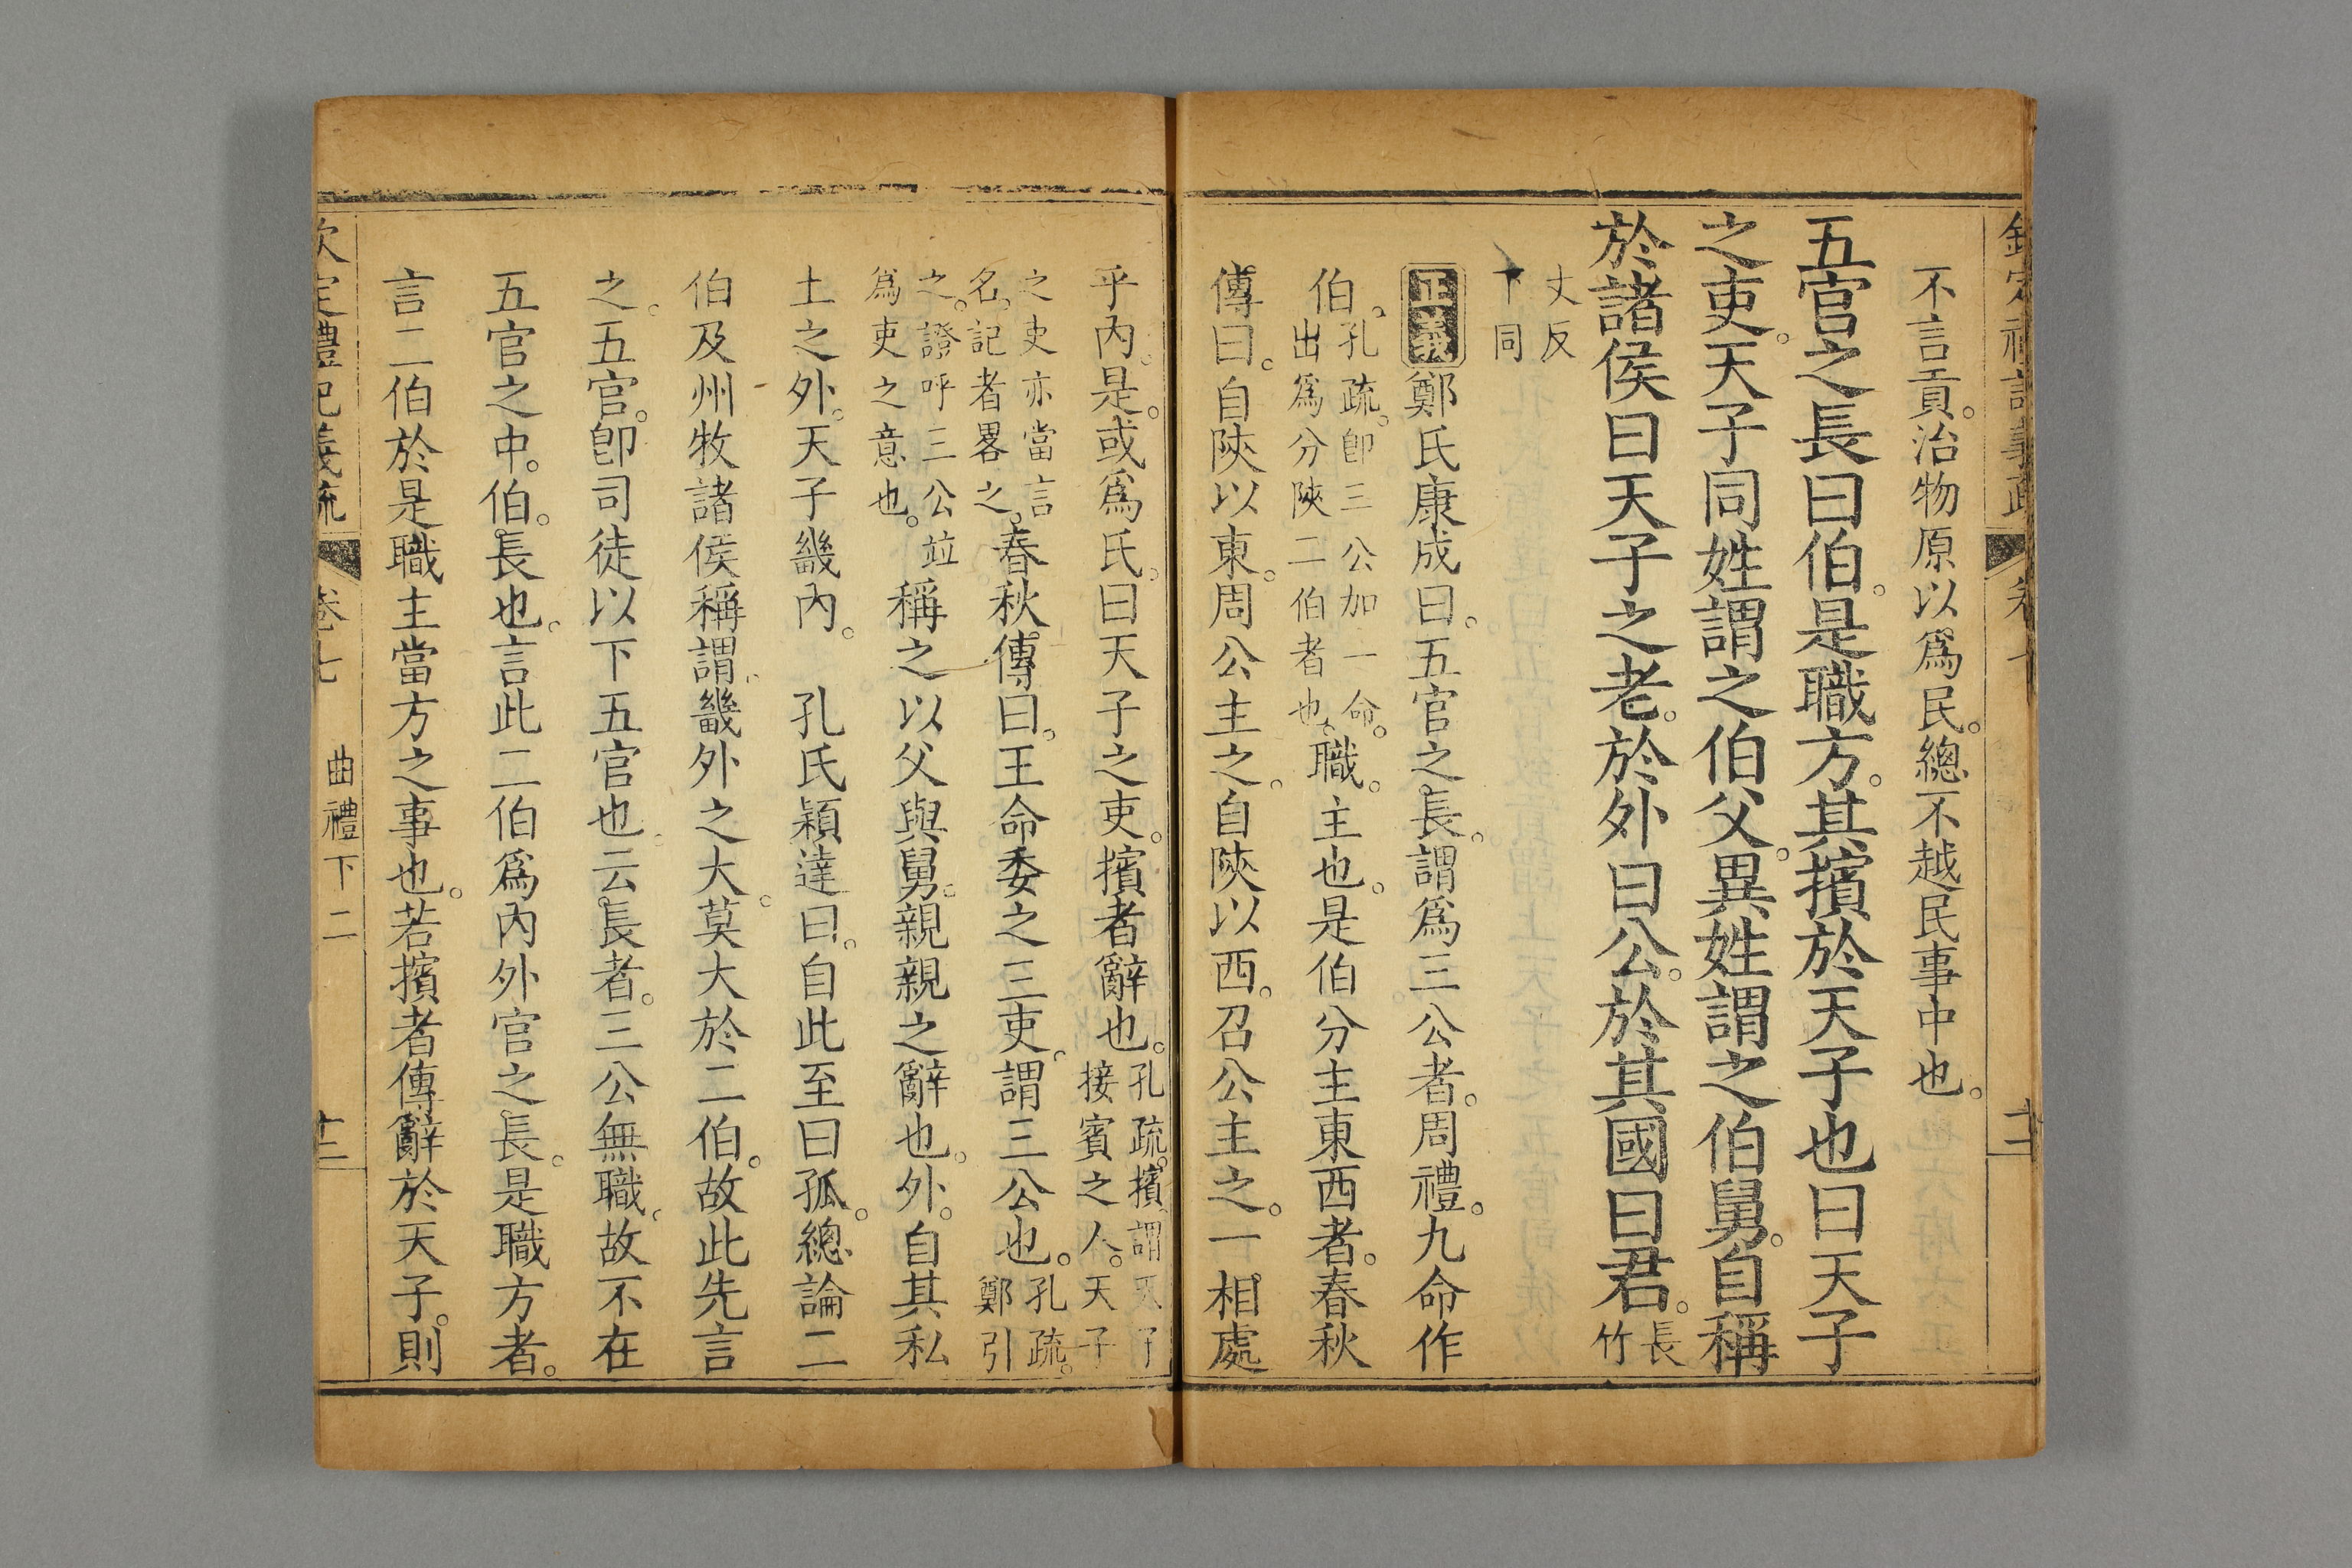 不言貢。治物原以爲民。總不越民事中也。
五官之長曰伯。是職方。其擯於天子也曰天子
之吏。天子同姓謂之伯父。異姓謂之伯舅。自稱
於諸侯曰天子之老。於外曰公。於其國曰君。長竹
丈反下同
正義鄭氏康成曰。五官之長。謂爲三公者。周禮。九命作
伯。孔疏。卽三公加一命。出爲分陝二伯者也。職。主也。是伯分主東西者。春秋
傳曰。自陝以東。周公主之。自陝以西。召公主之。一相處
乎內。是。或爲氏。曰天子之吏。擯者辭也。孔疏。擯謂天子接賓之人。天子
之吏亦當言名。記者畧之。春秋傳曰。王命委之三吏。謂三公也。孔疏。鄭引
之。證呼三公竝爲吏之意也。稱之以父與舅。親親之辭也。外。自其私
土之外。天子畿內。 孔氏穎達曰。自此至曰孤。總論二
伯及州牧諸侯稱謂。畿外之大。莫大於二伯。故此先言
之。五官。卽司徒以下五官也。云長者。三公無職。故不在
五官之中。伯。長也。言此二伯爲內外官之長。是職方者。
言二伯於是職主當方之事也。若擯者傳辭於天子。則
欽定禮記義疏 卷七 曲禮下二 十二